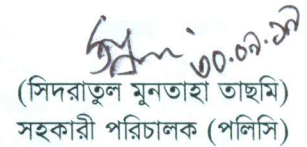 ৩০.০৯.১৯
(সিদরাতুল মুনতাহা তাছমি)
সহকারী পরিচালক (পলিসি)